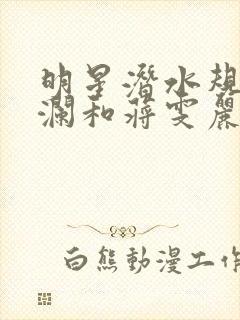 明星潛水規
瀾和蔣雯麗
白熊動漫工作